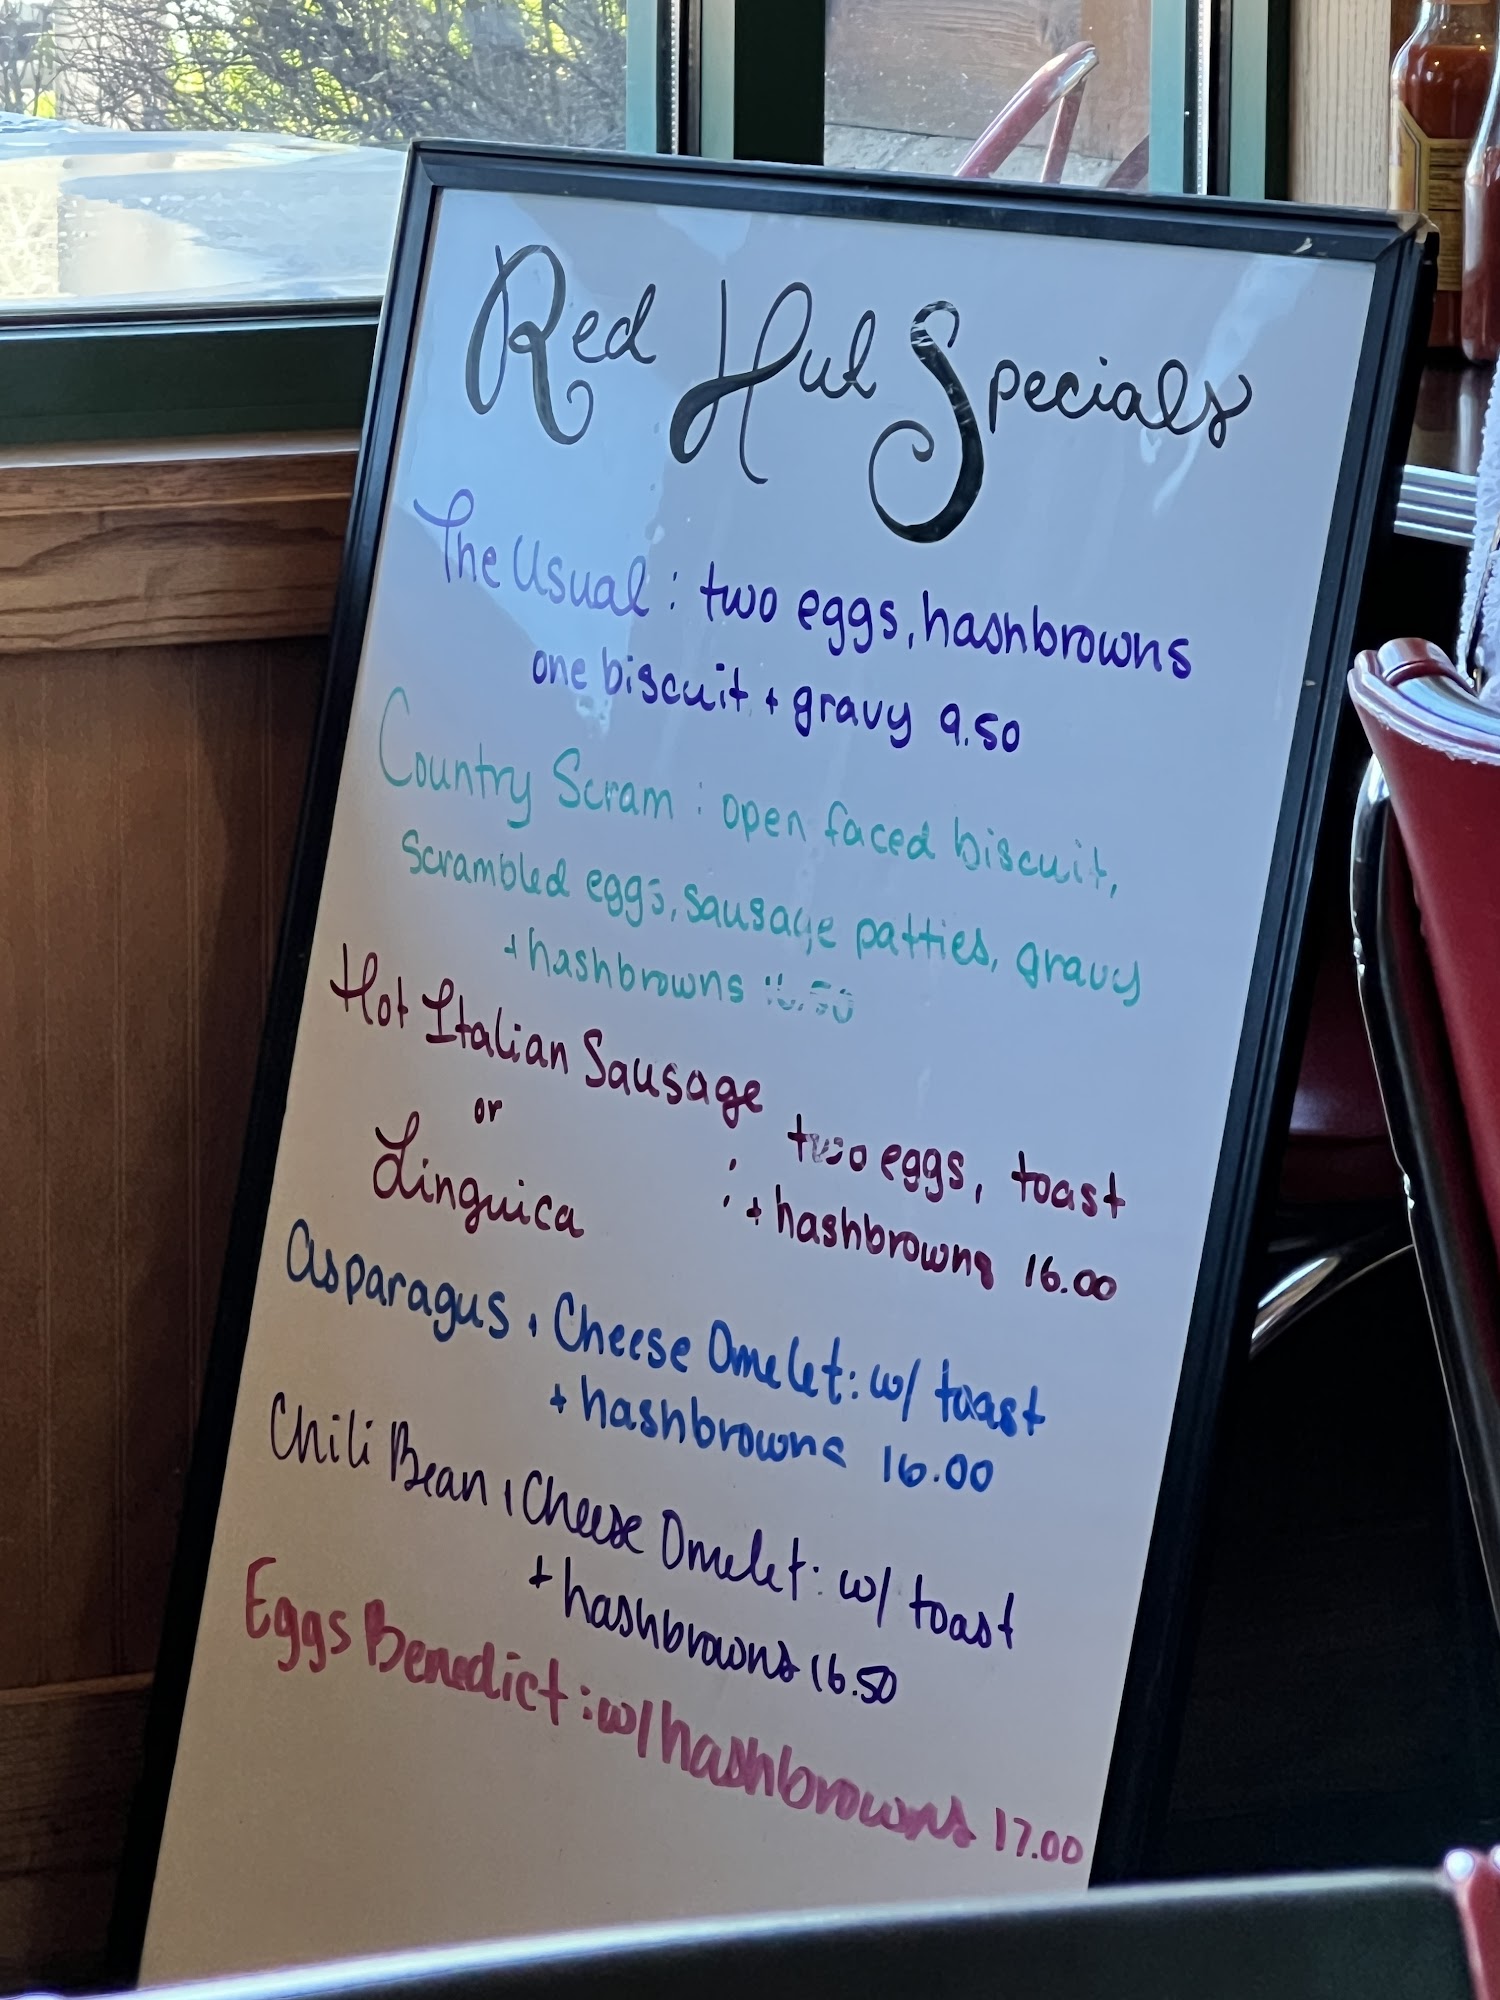 Red Hut Specials
The Usual: two eggs, hashbrowns
one biscuit + gravy 9.50
Country Scram: open faced biscuit,
scrambled eggs, sausage patties, gravy
+ hashbrowns
Hot Italian Sausage
or
Linguica
: two eggs, toast
+ hashbrowns 16.00
Asparagus + Cheese Omelet: w/ toast
+ hashbrowns 16.00
Chili Bean + Cheese Omelet: w/ toast
+ hashbrowns 16.50
Eggs Benedict: w/ hashbrowns 17.00